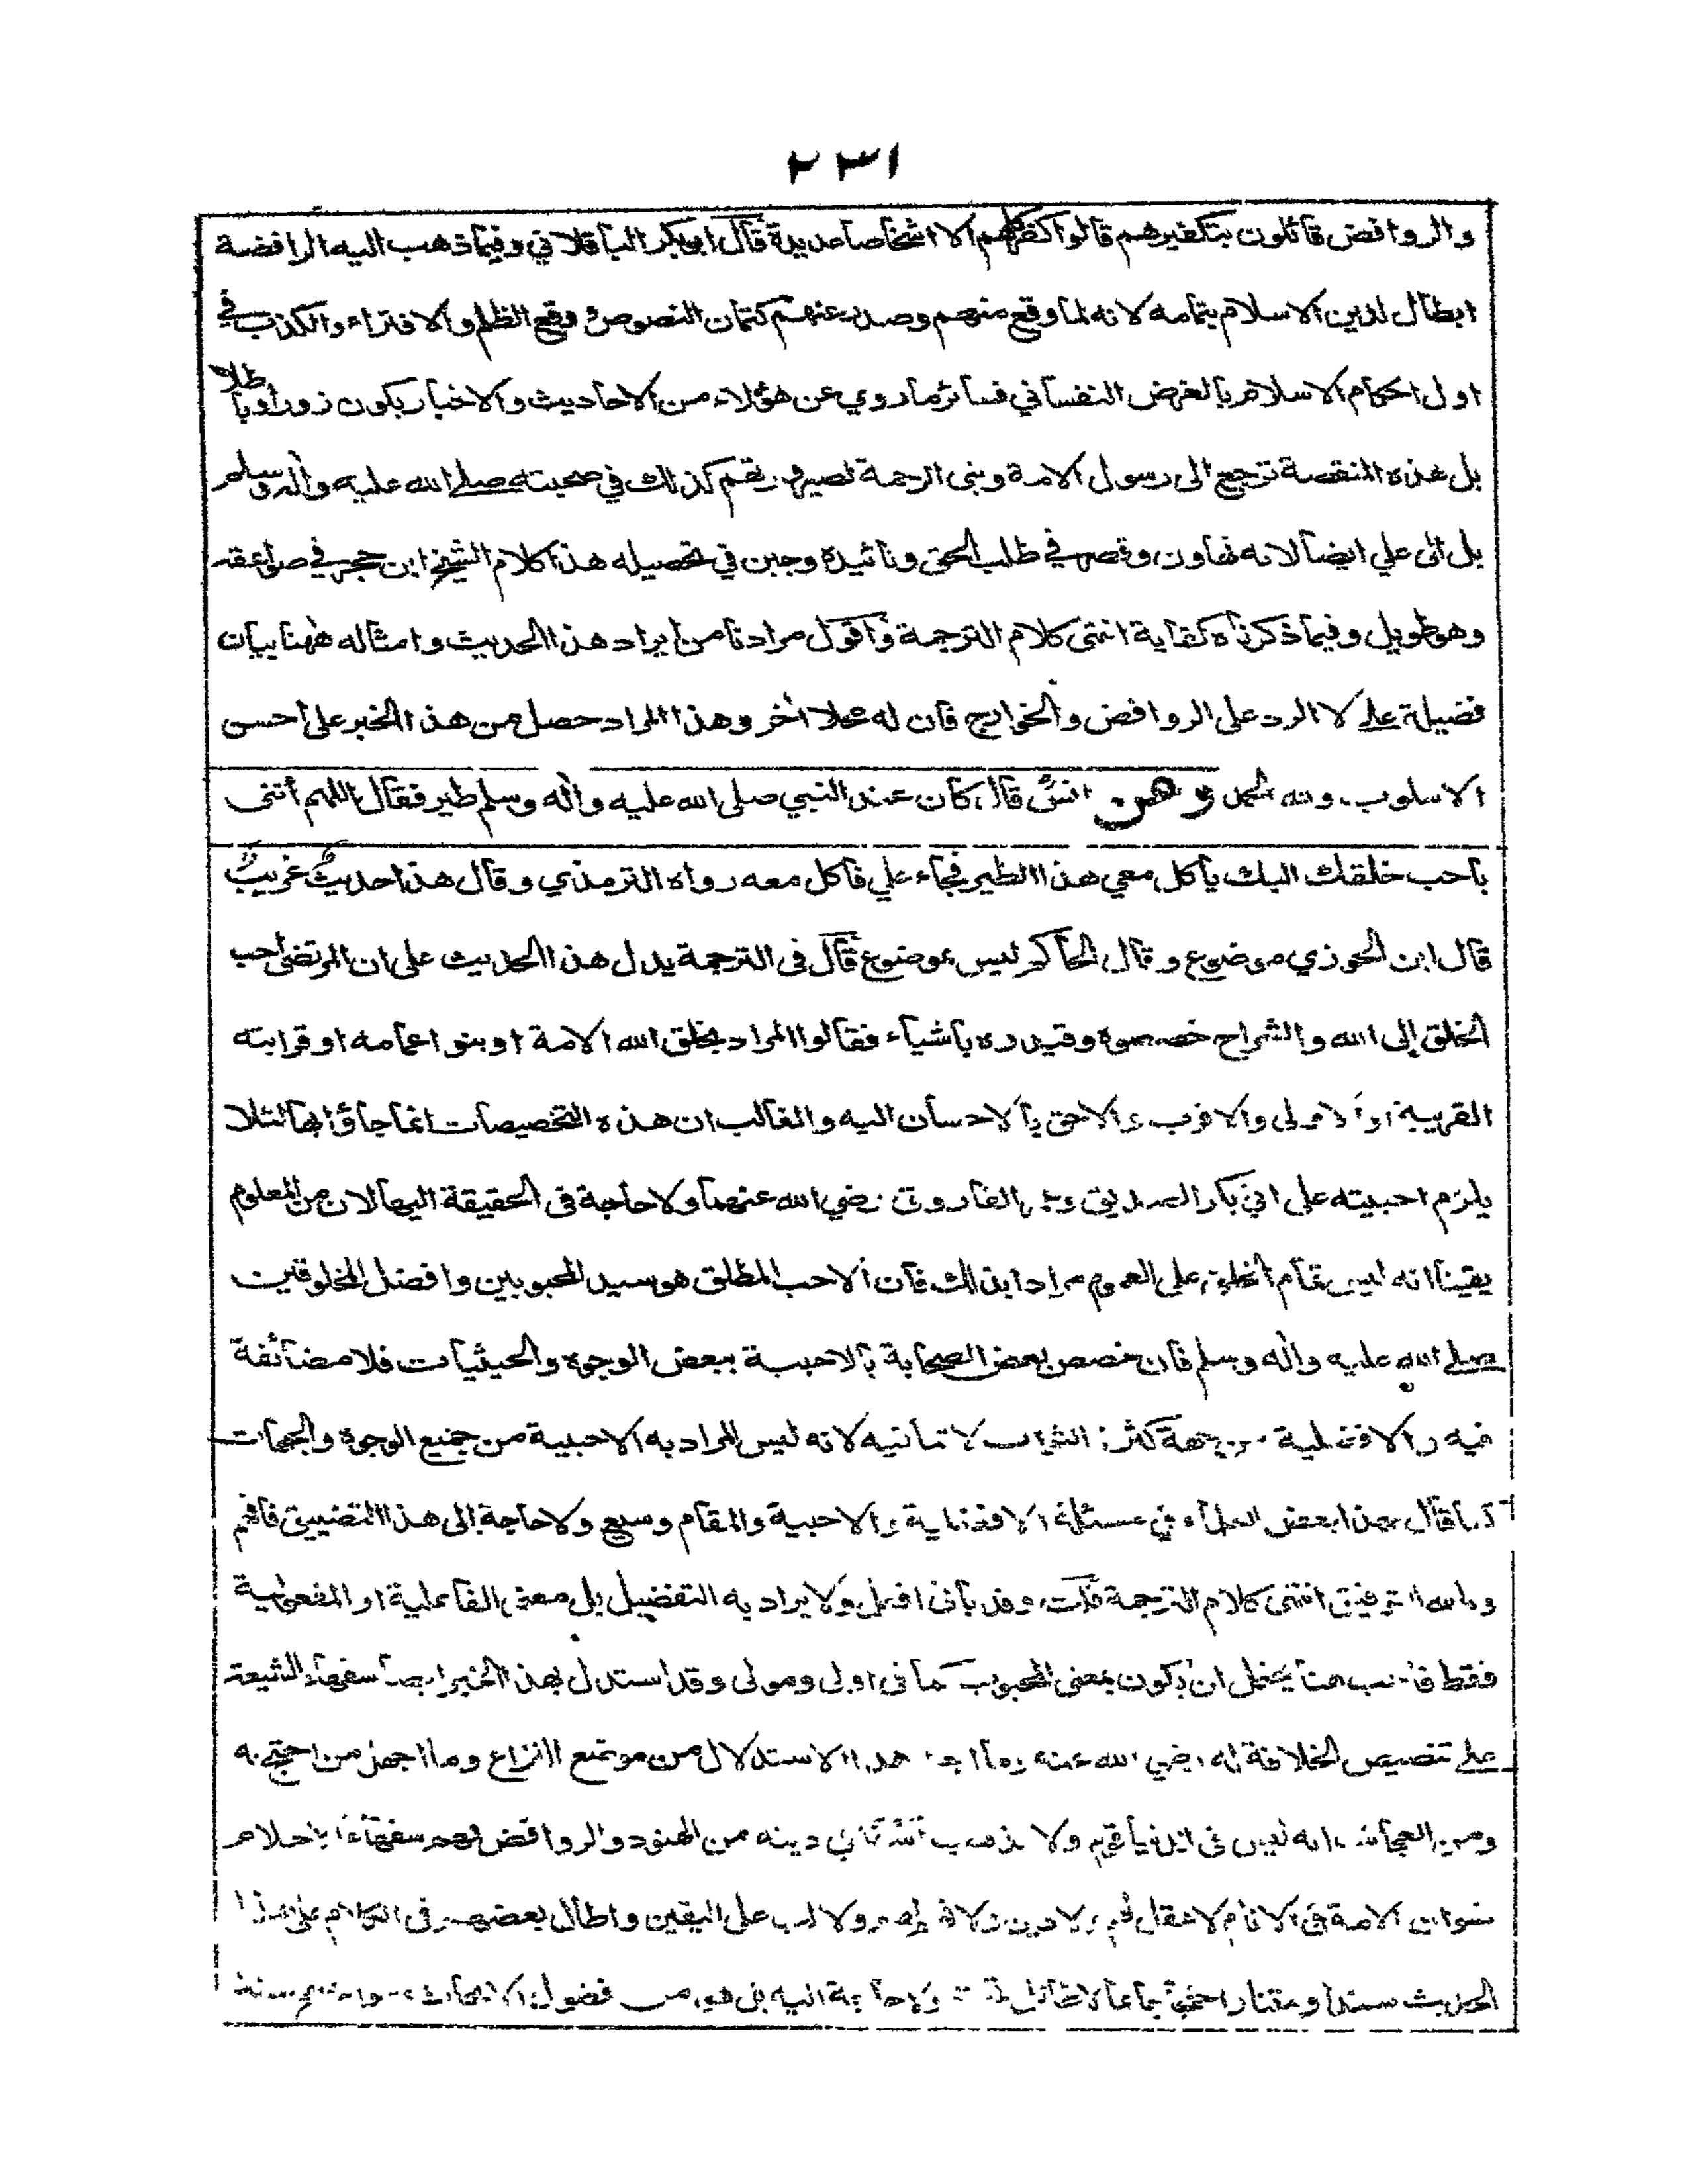 ٢٣١
والروافض قائلون بتكفيرهم قالوا كفر كلهم الا اشخاصا عديدة قال ابو بكر الباقلاني وفيما ذهب اليه الرافضة
ابطال لدين الاسلام بتمامه لانه لما وقع منهم وصدر عنهم كتمان النصوص وقع الظلم والافتراء والكذب في
اول احكام الاسلام بالغرض النفساني فسائر ما روي عن هؤلاء من الاحاديث والاخبار يكون زورا وباطلا
بل هذه المنقصة ترجع الى رسول الامة ونبى الرحمة كذلك في صحبته صلے الله عليه واٰله وسلم
بل الى علي ايضا لانه تهاون وقصر في طلب الحق وتائيده وجبن في تحصيله هذا كلام الشيخ ابن حجر في صواعقه
وهو طويل وفيما ذكرناه كفاية انتهى كلام الترجمة واقول مرادنا من ايراد هذا الحديث وامثاله ههنا بيان
فضيلة علے لا الرد على الروافض والخوارج فان له محلا اٰخر وهذا المراد حصل من هذا الخبر على احسن
الاسلوب ولله الحمد وعن انسٍ قال كان عند النبي صلى الله عليه واٰله وسلم طير فقال اللهم أتنى
باحب خلقك اليك يأكل معي هذا الطير فجاء علي فاكل معه رواه الترمذي وقال هذا حديثٌ غريبٌ
قال ابن الجوزي موضوع وقال الحاكم ليس بموضوع قال فى الترجمة يدل هذا الحديث على ان المرتضى احب
الخلق إلى الله والشراح خصصوه وقيدوه باشياء فقالوا المراد بخلق الله الامة او بنو اعمامه او قرابته
القريبة او الاولى والاقرب والاحق بالاحسان اليه والغالب ان هذه التخصيصات انما جاؤا بها لئلا
يلزم احبيته على ابي بكر الصديق وعمر الفاروق رضي الله عنهما ولا حاجة فى الحقيقة اليها لان من المعلوم
يقينا انه ليس تمام الخلق على العموم مرادا بذلك فان الاحب المطلق هو سيد المحبوبين وافضل المخلوقين
صلے الله عليه واٰله وسلم فان خصص بعض الصحابة بالاحبية ببعض الوجوه والحيثيات فلا مضائقة
فيه والافضلية من جهة كثرة الثواب لا تنافيه لانه ليس المراد به الاحبية من جميع الوجوه والجهات
قال بهذا بعض العلماء في مسئلة الافضلية والاحبية والمقام وسيع ولا حاجة الى هذا التضييق فافهم
وبالله التوفيق انتهى كلام الترجمة قلت وقد يأتى افعل ولا يراد به التفضيل بل معنى الفاعلية او المفعولية
فقط فاحب هنا يحتمل ان يكون بمعنى المحبوب كما فى اولى ومولى وقد استدل بهذا الخبر سفهاء الشيعة
علے تنصيص الخلافة له رضي الله عنه وما هذا الاستدلال من موضع النزاع وما اجهل من احتج به
ومن العجائب انه ليس فى الدنيا قوم ولا مذهب دينه من الهنود والروافض فهم سفهاء احلام
نسوان الامة فى الانام لا عقل لهم ولا دين على اليقين واطال بعضهم فى الكلام على هذا
الحديث سندا ومتنا ولا حاجة اليه بل هو من فضول